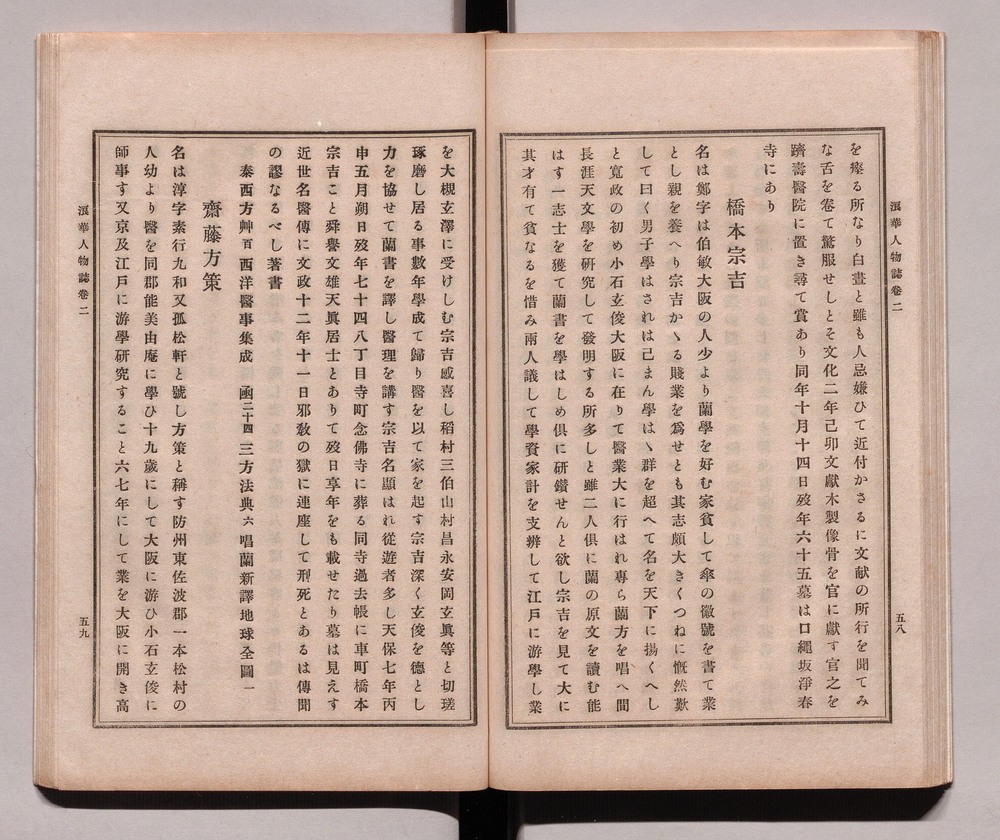 浪華人物誌卷二
五八
を瘞る所なり白晝と雖も人忌嫌ひて近付かさるに文献の所行を聞てみ
な舌を卷て驚服せしとそ文化二年己卯文獻木製像骨を官に獻す官之を
躋壽醫院に置き尋て賞あり同年十月十四日歿年六十五墓は口繩坂淨春
寺にあり
橋本宗吉
名は鄭字は伯敏大阪の人少より蘭學を好む家貧して傘の徽號を書て業
とし親を養へり宗吉かゝる賤業を爲せとも其志頗大きくつねに慨然歎
して曰く男子學はされは己まん學はゝ群を超へて名を天下に揚くへし
と寛政の初め小石玄俊大阪に在りて醫業大に行はれ專ら蘭方を唱へ間
長涯天文學を研究して發明する所多しと雖二人倶に蘭の原文を讀む能
はす一志士を獲て蘭書を學はしめ倶に研鑽せんと欲し宗吉を見て大に
其才有て貧なるを惜み兩人議して學資家計を支辨して江戸に游學し業
を大槻玄澤に受けしむ宗吉感喜し稻村三伯山村昌永安岡玄眞等と切瑳
琢磨し居る事數年學成て歸り醫を以て家を起す宗吉深く玄俊を德とし
力を協せて蘭書を譯し醫理を講す宗吉名顯はれ從遊者多し天保七年丙
申五月朔日歿年七十四八丁目寺町念佛寺に葬る同寺過去帳に車町橋本
宗吉こと舜譽文雄天眞居士とありて歿日享年をも載せたり墓は見えす
近世名醫傳に文政十二年十一日邪敎の獄に連座して刑死とあるは傳聞
の謬なるべし著書
泰西方艸百 西洋醫事集成 函二十四 三方法典六 唱蘭新譯地球全圖一
齋藤方策
名は淳字素行九和又孤松軒と號し方策と稱す防州東佐波郡一本松村の
人幼より醫を同郡能美由庵に學ひ十九歳にして大阪に游ひ小石玄俊に
師事す又京及江戸に游學研究すること六七年にして業を大阪に開き高
浪華人物誌卷二
五九